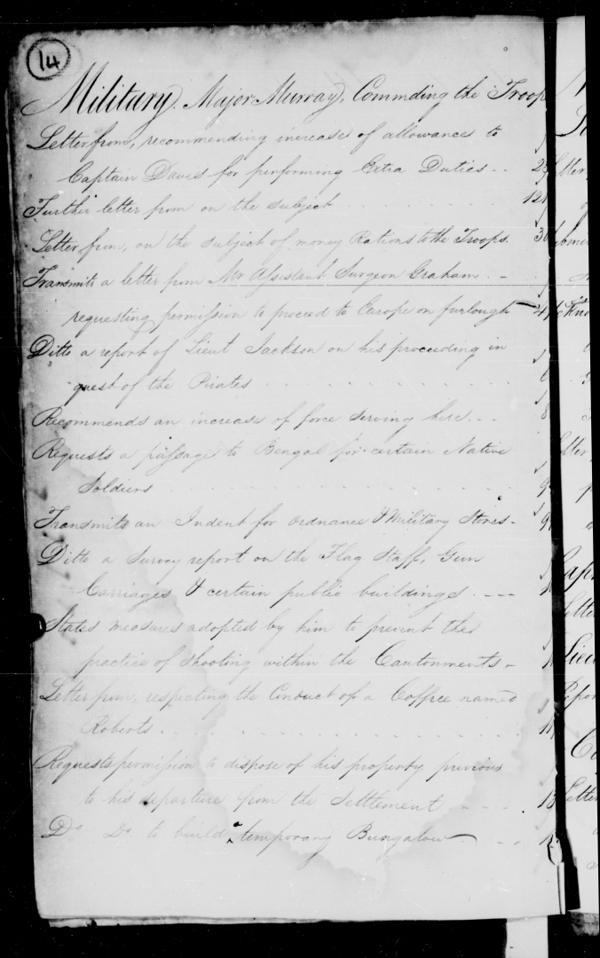 14
Military Major Murray, Commding the Troop
Letter from, recommending increase of allowances to
Captain Davies for performing Extra Duties - -
Further letter from on the subject
Letter from, on the subject of money Rations to the Troops.
Transmits a letter from Mr Assistant Surgeon Graham - -
requesting permission to proceed to Europe on furlough
Ditto a report of Lieut Jackson on his proceeding in
quest of the Pirates
Recommends an increase of force serving here - -
Requests a passage to Bengal for certain Native
Soldiers
Transmits an Indent for Ordnance & Military Stores -
Ditto a Survey report on the Flag Staff, Gun
Carriages & certain public buildings - - -
States measures adopted by him to prevent the
practice of shooting within the Cantonments -
Letter from, respecting the Conduct of a Coffree named
Roberts
Requests permission to dispose of his property previous
to his departure from the Settlement
Do Do to build a temporary Bungalow